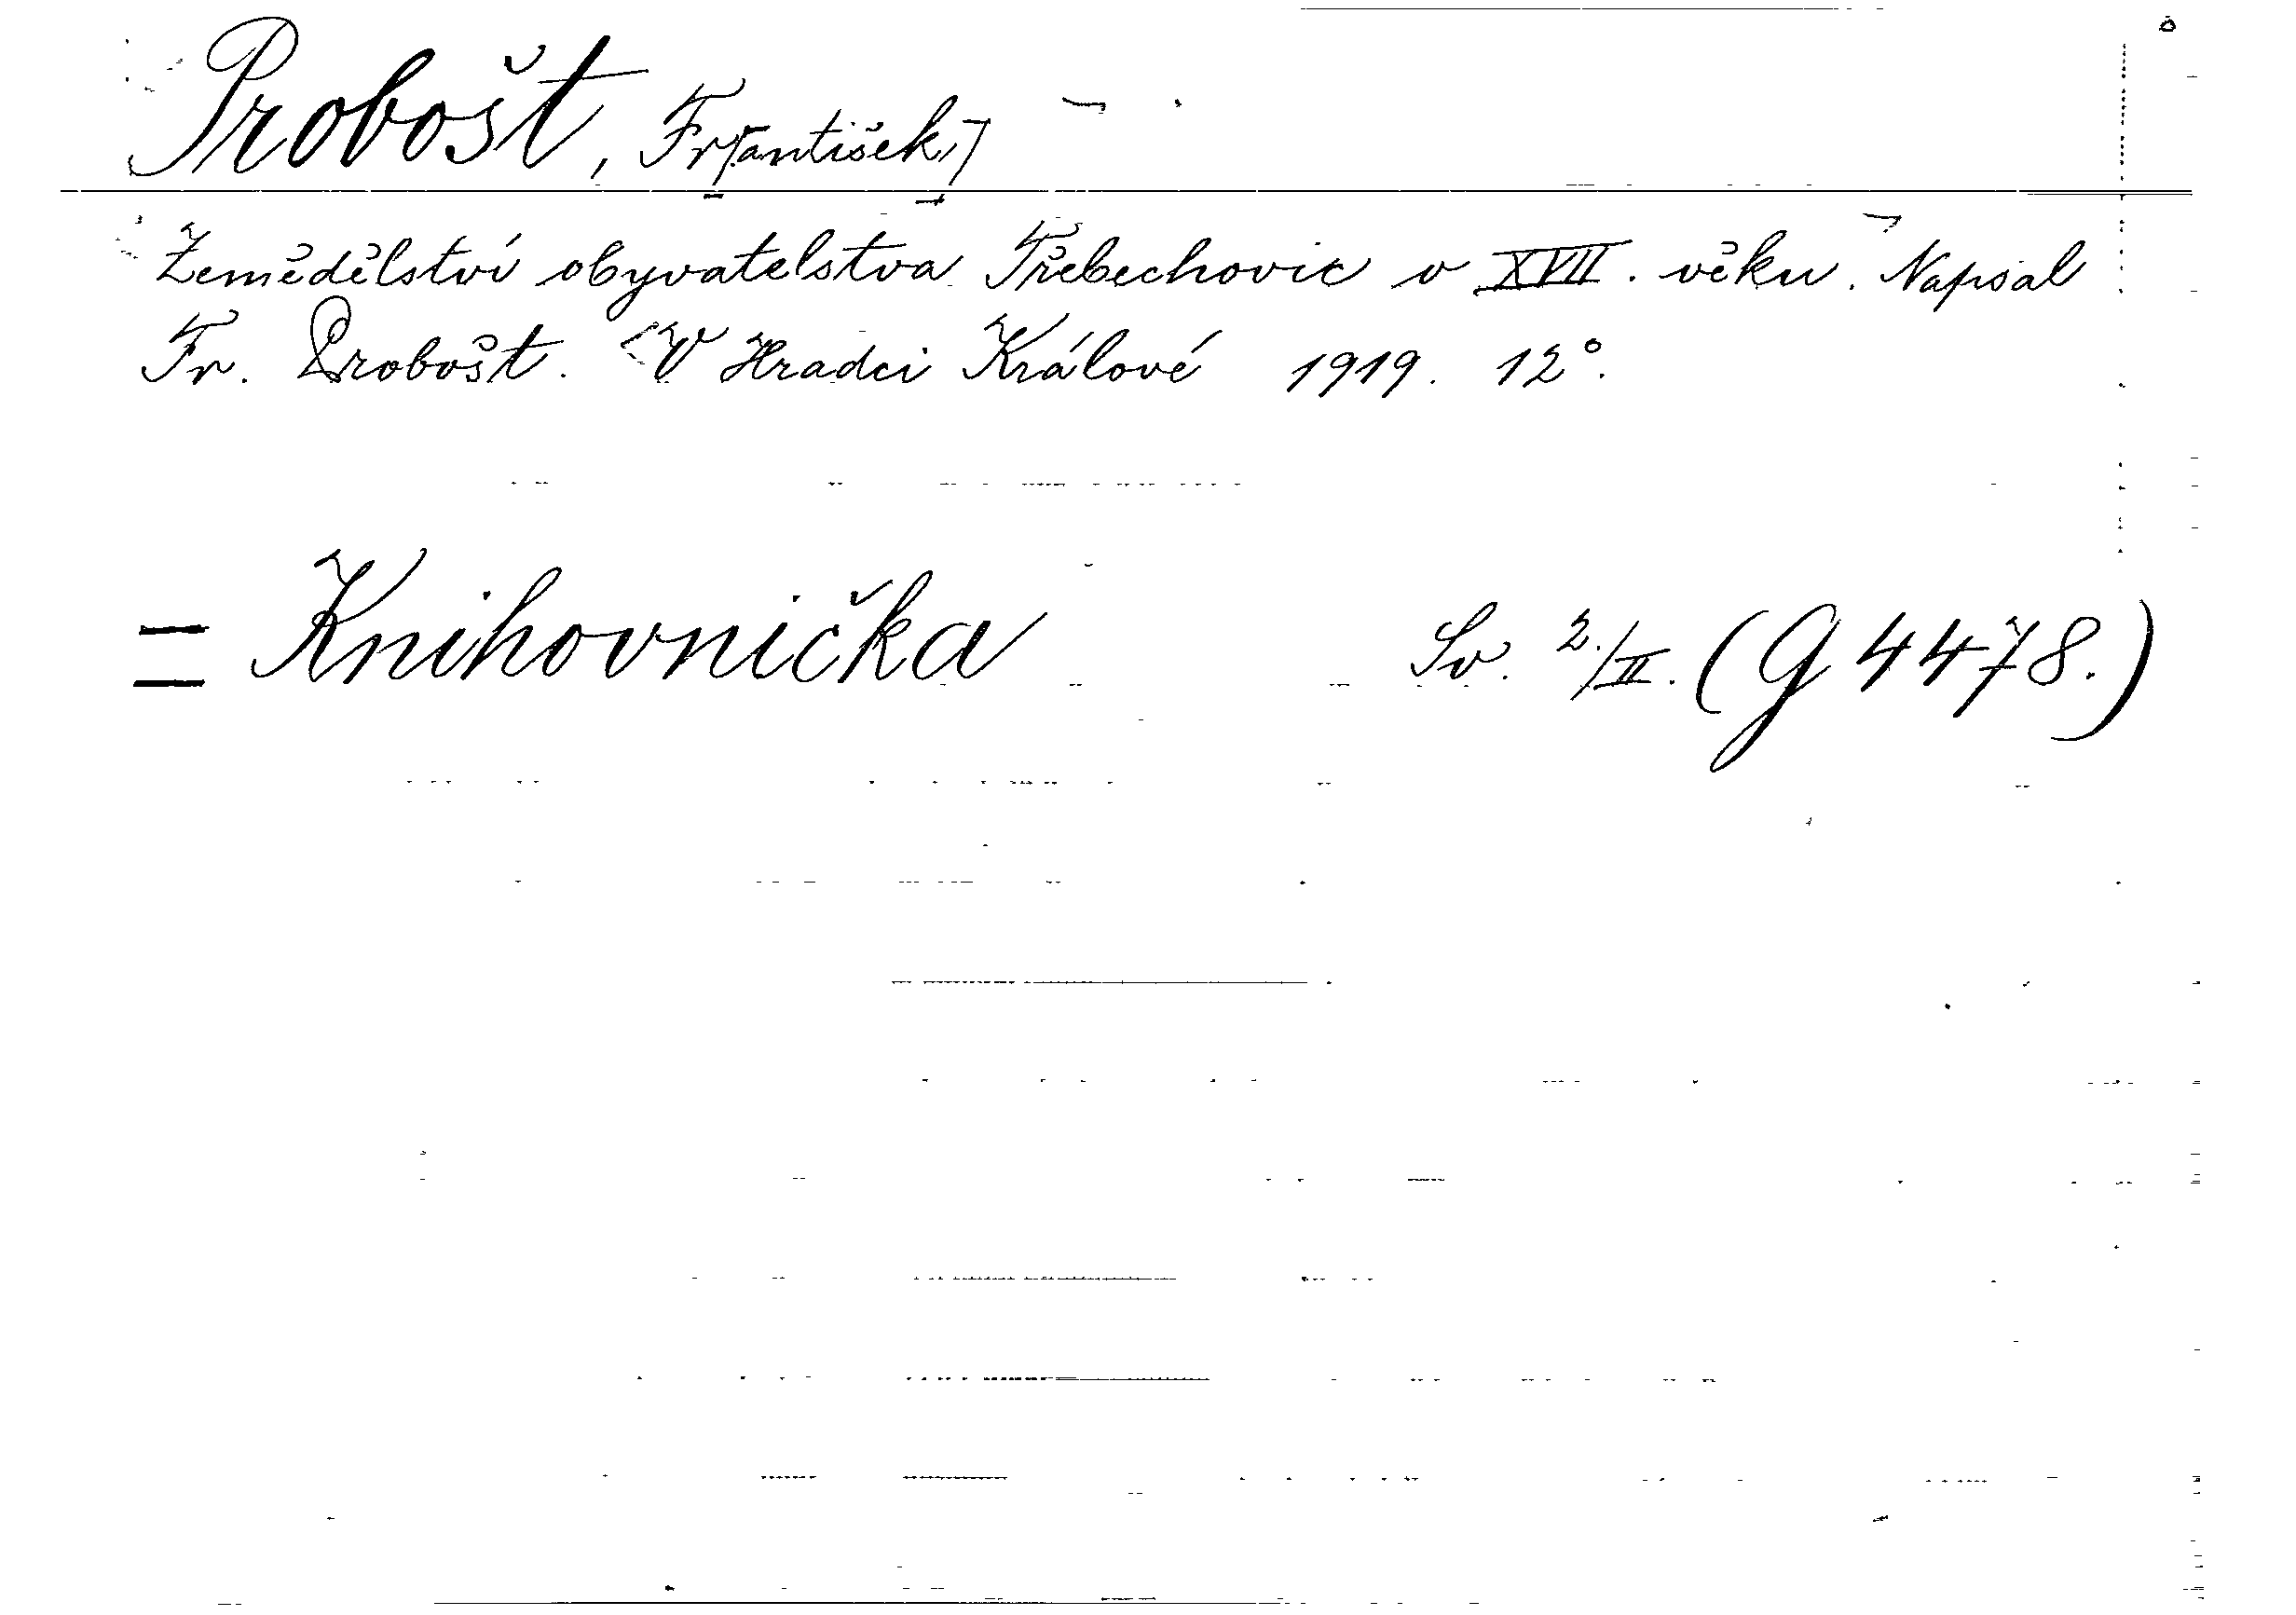 Probošt, Fr[antišek]
Zemědělství obyvatelstva Třebechovic v XVII. věku. Napsal
Fr. Probošt. V Hradci Králové 1919. 12°.
= Knihovnička Sv. 2./II. (G 4478.)